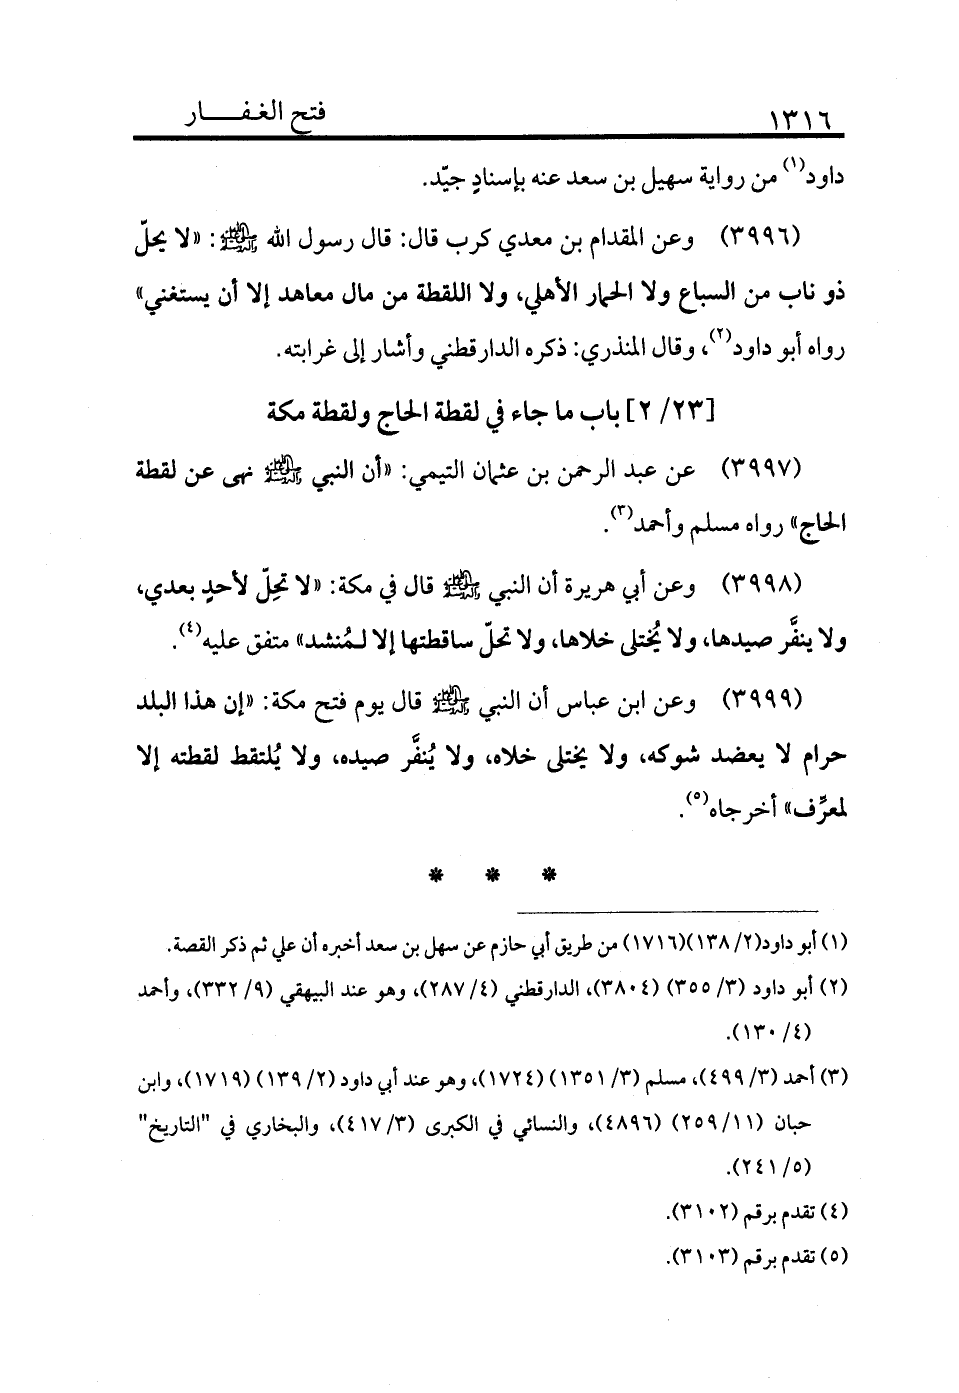 ١٣١٦ فتح الغفـــــار
داود(١) من رواية سهيل بن سعد عنه بإسنادٍ جيّد.
(٣٩٩٦) وعن المقدام بن معدي كرب قال: قال رسول الله ﷺ: «لا يحلّ
ذو ناب من السباع ولا الحمار الأهلي، ولا اللقطة من مال معاهد إلا أن يستغني»
رواه أبو داود(٢)، وقال المنذري: ذكره الدارقطني وأشار إلى غرابته.
[٢/٢٣] باب ما جاء في لقطة الحاج ولقطة مكة
(٣٩٩٧) عن عبد الرحمن بن عثمان التيمي: «أن النبي ﷺ نهى عن لقطة
الحاج» رواه مسلم وأحمد(٣).
(٣٩٩٨) وعن أبي هريرة أن النبي ﷺ قال في مكة: «لا تحِلّ لأحدٍ بعدي،
ولا ينفَّر صيدها، ولا يُختلى خلاها، ولا تحلّ ساقطتها إلا لـمُنشد» متفق عليه(٤).
(٣٩٩٩) وعن ابن عباس أن النبي ﷺ قال يوم فتح مكة: «إن هذا البلد
حرام لا يعضد شوكه، ولا يختلى خلاه، ولا يُنفَّر صيده، ولا يُلتقط لقطته إلا
لمعرِّف» أخرجاه(٥).
* * *
(١) أبو داود(٢/ ١٣٨)(١٧١٦) من طريق أبي حازم عن سهل بن سعد أخبره أن علي ثم ذكر القصة.
(٢) أبو داود (٣/ ٣٥٥) (٣٨٠٤)، الدارقطني (٤/ ٢٨٧)، وهو عند البيهقي (٩/ ٣٣٢)، وأحمد
(٤/ ١٣٠).
(٣) أحمد (٣/ ٤٩٩)، مسلم (٣/ ١٣٥١) (١٧٢٤)، وهو عند أبي داود (٢/ ١٣٩) (١٧١٩)، وابن
حبان (١١/ ٢٥٩) (٤٨٩٦)، والنسائي في الكبرى (٣/ ٤١٧)، والبخاري في "التاريخ"
(٥/ ٢٤١).
(٤) تقدم برقم (٣١٠٢).
(٥) تقدم برقم (٣١٠٣).